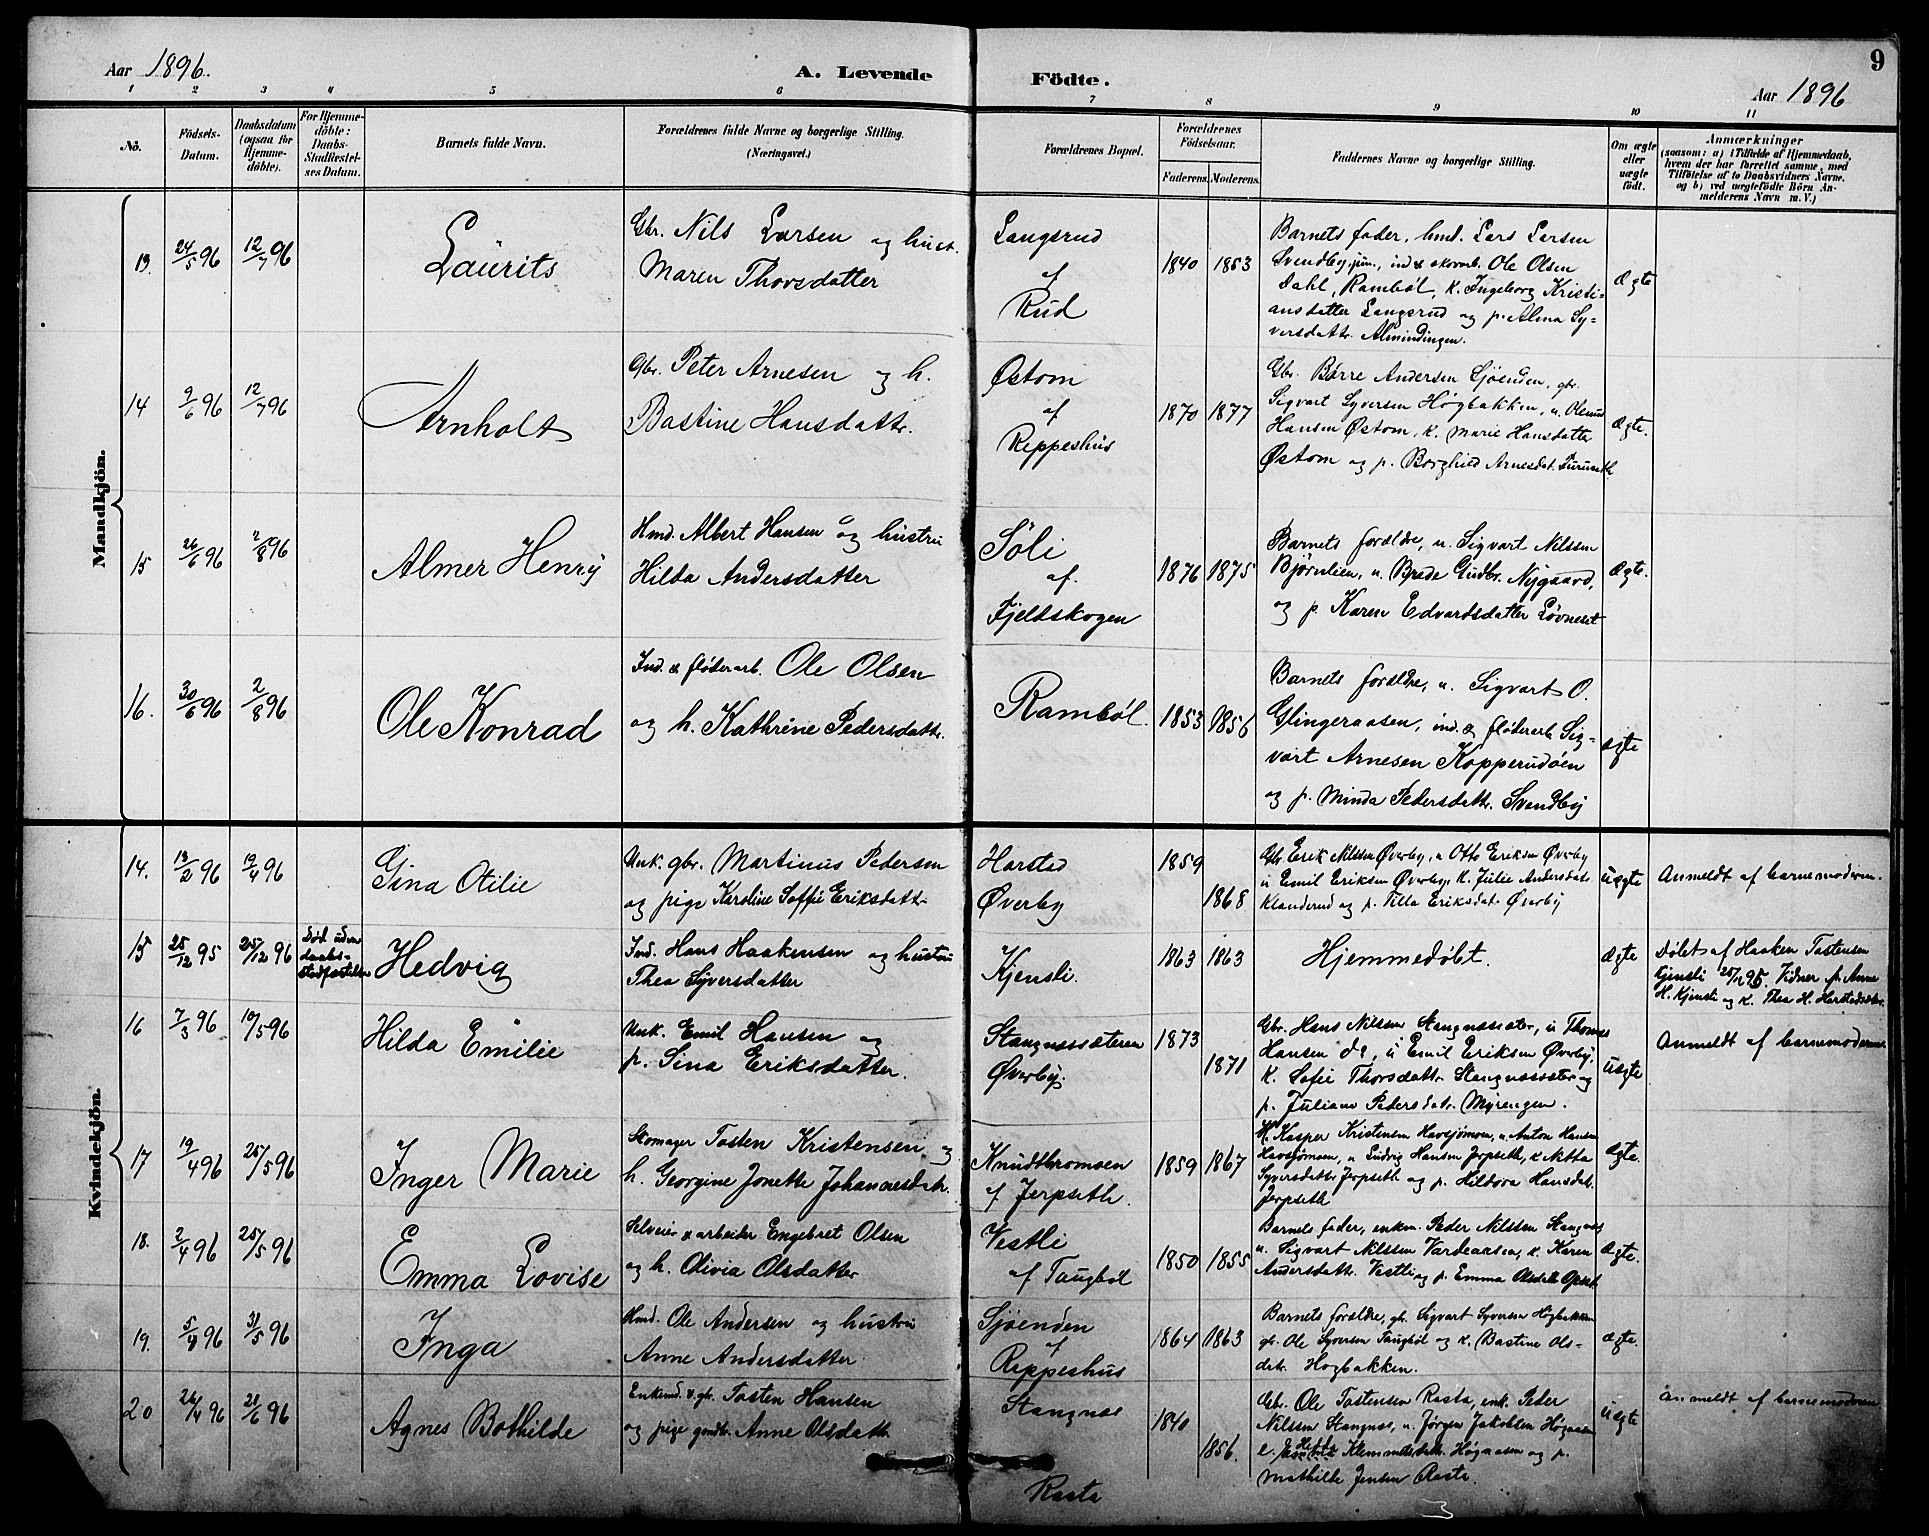 Aar 1896.
A. Levende Födte.
9
Aar 1896
1 2 3 4 5 6 7 8 9 10 11
Nö.
Födsels-
Datum.
Daabsdatum
(ogsaa for
Hjemme-
döbte).
For Hjemme-
döbte:
Daabs-
Stadfæstel-
ses Datum.
Barnets fulde Navn.
Forældrenes fulde Navne og borgerlige Stilling.
(Næringsvei.)
Forældrenes Bopæl.
Forældrenes
Födselsaar.
Faderens. Moderens.
Faddernes Navne og borgerlige Stilling.
Om ægte
eller
uægte
födt.
Anmærkninger
(saasom: a) i Tilfælde af Hjemmedaab,
hvem der har forrettet samme, med
Tilföielse af to Daabsvidners Navne.
og b) ved uægtefödte Börn An-
melderens Navn m. V.)
Mandkjön.
13. 24/5 96 12/7 96
Laurits
Gbr. Nils Larsen og hust.
Maren Thorsdatter
Langsrud
af
Rud
1840 1853
Barnets fader, hmd. Lars Larsen
Svendby jun., ind & skovarb. Ole Olsen
Dahl, Rambøl, k. Ingeborg Kristi-
ansdatter Langsrud og p. Alma Sy-
versdattr. Almindingen.
Ægte
14 9/6 96 12/7 96
Arnholt
Gbr. Peter Arnesen og h.
Bastine Hansdattr.
Østom
af
Reppeshus
1870 1877
Gbr. Børre Andersen Sjøenden, gbr.
Sigvart Syversen Høgbakken, u. Olenus
Hansen Østom, k. Marie Hansdatter
Østom og p. Borghild Arnesdat. Furuseth
Ægte.
15 26/6 96 2/8 96
Almer Henry
Hmd. Albert Hansen og hustru
Hilda Andersdatter
Søli
af.
Fjeldskogen
1876 1875
Barnets forældre, u. Sigvart Nilssen
Bjørnlien, u. Brede Gudbr. Nygaard,
og p. Karen Edvardsdatter Løvneset
Ægte.
16. 30/6 96 2/8 96
Ole Konrad
Ind. & fløderarb. Ole Olsen
og h. Kathrine Pedersdattr.
Rambøl
1853 1856
Barnets forældre, u. Sigvart O.
Glingeraasen, ind. & fløderarb. Sig-
vart Arnesen Kopperudøen
og p. Minda Pedersdattr. Svendby
ægte
Kvindekjön.
14. 13/2 96 19/4 96
Gina Otilie
Unk. gbr. Martinus Pedersen
og pige Karoline Soffie Eriksdattr
Harstad
Øverby
1859
1868
Gbr. Erik Nilssen Øverby, u Otto Eriksen Øverby
u Emil Eriksen Øverby, k. Julie Andersdat.
Klanderud og p. Tilla Eriksdat. Øverby
uægte
Anmeldt af barnemoderen.
15 25/12 95 25/12 96
Død uden
daabs-
stadfæstelse
Hedvig
Ind. Hans Haakensen og hustru
Thea Syversdatter
Kjensli.
1863 1863
Hjemmedøbt.
Ægte
Døbt af Haaken Tostensen
Kjensli 25/12 95. Vidner p. Anne
H. Kjensli og k. Thea H. Harstadsæter.
16 7/3 96 10/5 96
Hilda Emilie
Unk. Emil Hansen og
p. Sina Eriksdatter.
Stangnessæteren
Øverby.
1873
1871
Gbr. Hans Nilssen Stangnessæter, u Thomas
Hansen do, u Emil Eriksen Øverby.
k. Sofie Thorsdattr. Stangnessæter og
p. Juliane Pedersdatr. Myrengen.
uægte
Anmeldt af barnemoderen.
17 19/4 96 25/5 96
Inger Marie
Skomager Tosten Kristensen og
h. Georgine Jonette Johannesdatr.
Knudtbromoen
af Jerpseth.
1859 1867
H. Kasper Kristensen Havsjømoen, u. Anton Hansen
Havsjømoen, u Ludvig Hansen Jerpseth, k. Mitta
Syversdattr Jerpseth og p. Hildora Hansdat.
Jerpseth
Ægte.
18. 2/4 96 25/5 96
Emma Lovise
Selveier & arbeider Engebret Olsen
og h. Olivia Olsdatter
Vestli
af Taugbøl
1850 1855
Barnets fader, enkm. Peder Nilssen Stangnes
u. Sigvart Nilssen Vardeaasen, k. Karen
Andersdattr. Vestli og p. Emma Olsdatt Opset.
Ægte.
19. 5/4 96 31/5 96
Inga
Hmd. Ole Andersen og hustru
Anne Andersdatter.
Sjøenden
af
Reppeshus
1864 1863
Barnets forældre, gbr. Sigvart Syversen Høgbakken
gbr. Ole Syversen Taugbøl og k. Bastine Ols-
datr. Høgbakken.
ægte.
20 26/4 96 21/6 96
Agnes Bothilde
Enkemd. & gbr. Tosten Hansen
og pige gmdtr. Anne Olsdattr
Stangnes
Rasta
1840
1856.
Gbr. Ole Tostensen Rasta, enk. Peder
Nilssen Stangnes, u. Jørgen Jakobsen Høgaasen
e. Klemmetsdatr. Høgaasen og p.
Mathilde Jensen Rasta.
uægte
Anmeldt af barnemoderen
3